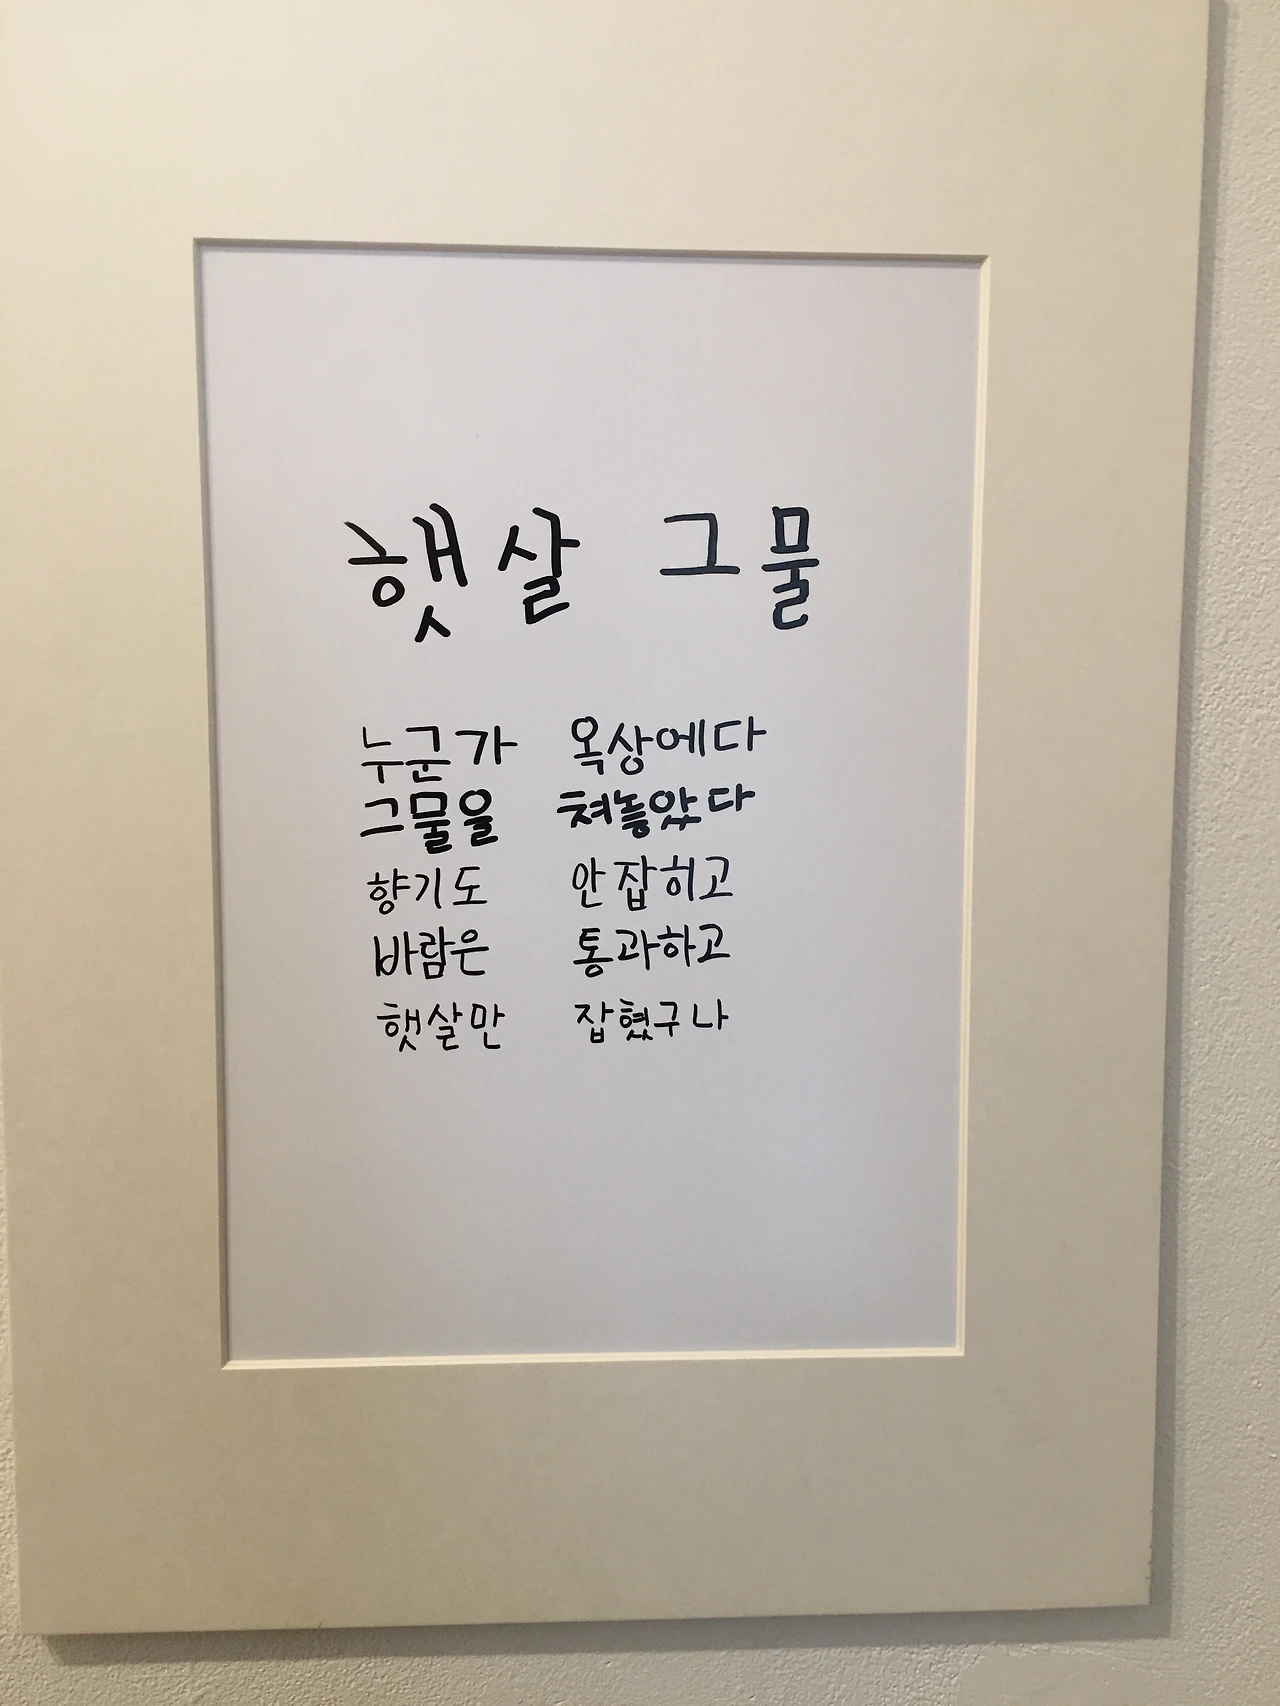 햇살 그물
누군가 옥상에다
그물을 쳐놓았다
향기도 안잡히고
바람은 통과하고
햇살만 잡혔구나